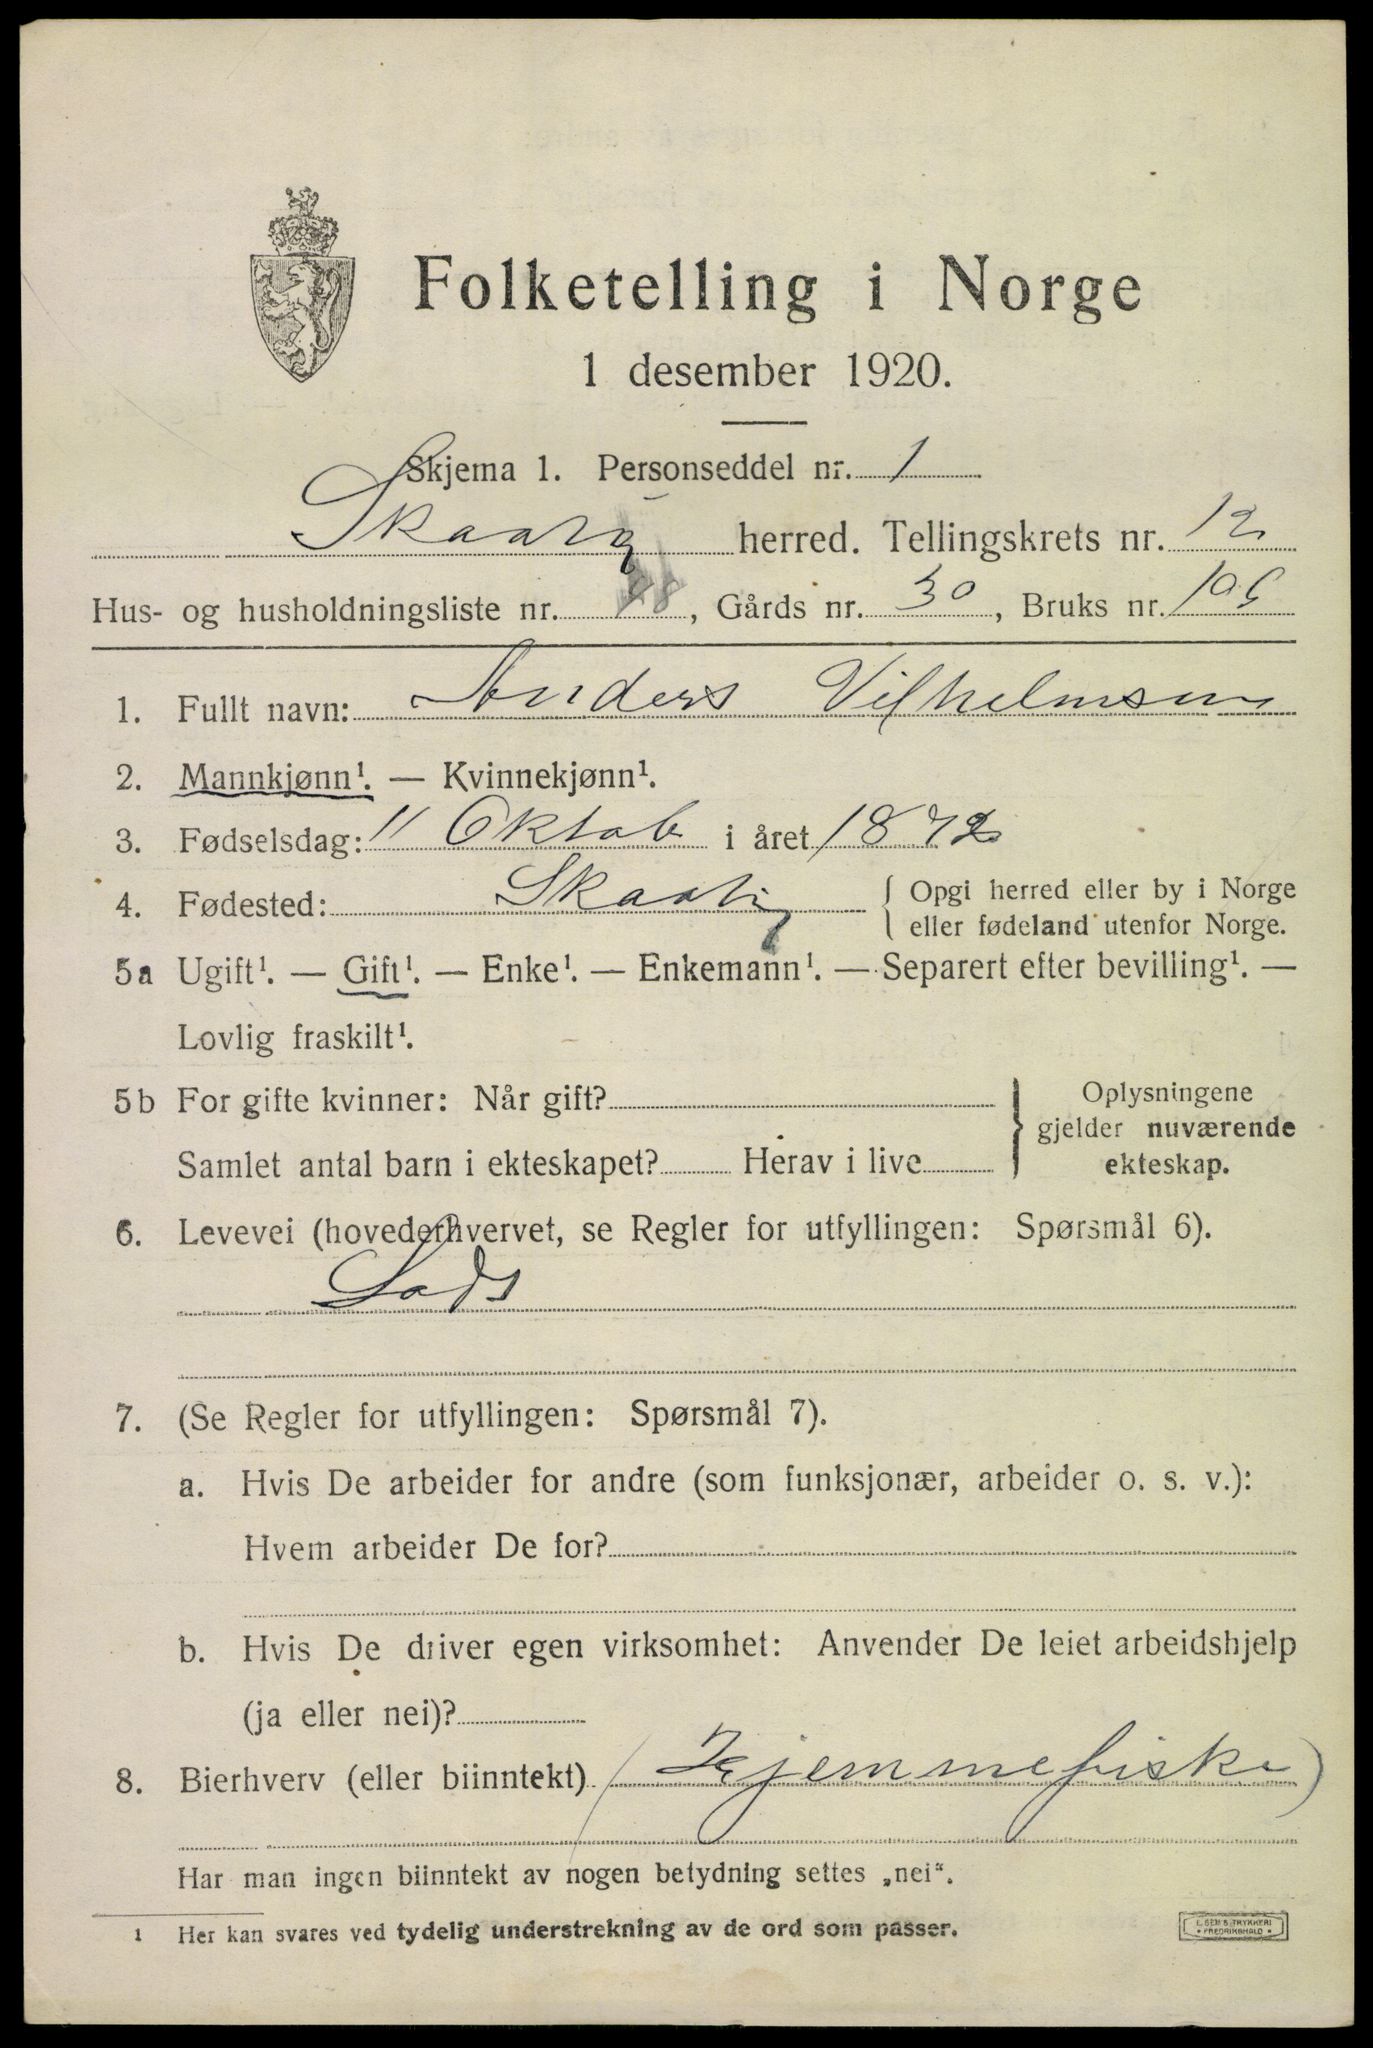 Folketelling i Norge
1 desember 1920.
Skjema 1. Personseddel nr. 1
Skaatøy herred. Tellingskrets nr. 12
Hus- og husholdningsliste nr. 28, Gårds nr. 30, Bruks nr.
1. Fullt navn: Anders Vilhelmsen
2. Mannkjønn¹. — Kvinnekjønn¹.
3. Fødselsdag: 11 Oktob i året 1872
4. Fødested: Skaatøy { Opgi herred eller by i Norge
eller fødeland utenfor Norge.
5a Ugift¹. — Gift¹. — Enke¹. — Enkemann¹. — Separert efter bevilling¹. —
Lovlig fraskilt¹.
5b For gifte kvinner: Når gift? } Oplysningene
gjelder nuværende
Samlet antal barn i ekteskapet? Herav i live ekteskap.
6. Levevei (hovederhvervet, se Regler for utfyllingen: Spørsmål 6).
Lods
7. (Se Regler for utfyllingen: Spørsmål 7).
a. Hvis De arbeider for andre (som funksjonær, arbeider o. s. v.):
Hvem arbeider De for?
b. Hvis De driver egen virksomhet: Anvender De leiet arbeidshjelp
(ja eller nei)?
8. Bierhverv (eller biinntekt) (Hjemmefiske)
Har man ingen biinntekt av nogen betydning settes „nei“.
1 Her kan svares ved tydelig understrekning av de ord som passer.
E. SEM'S TRYKKERI
• FREDRIKSHALD •